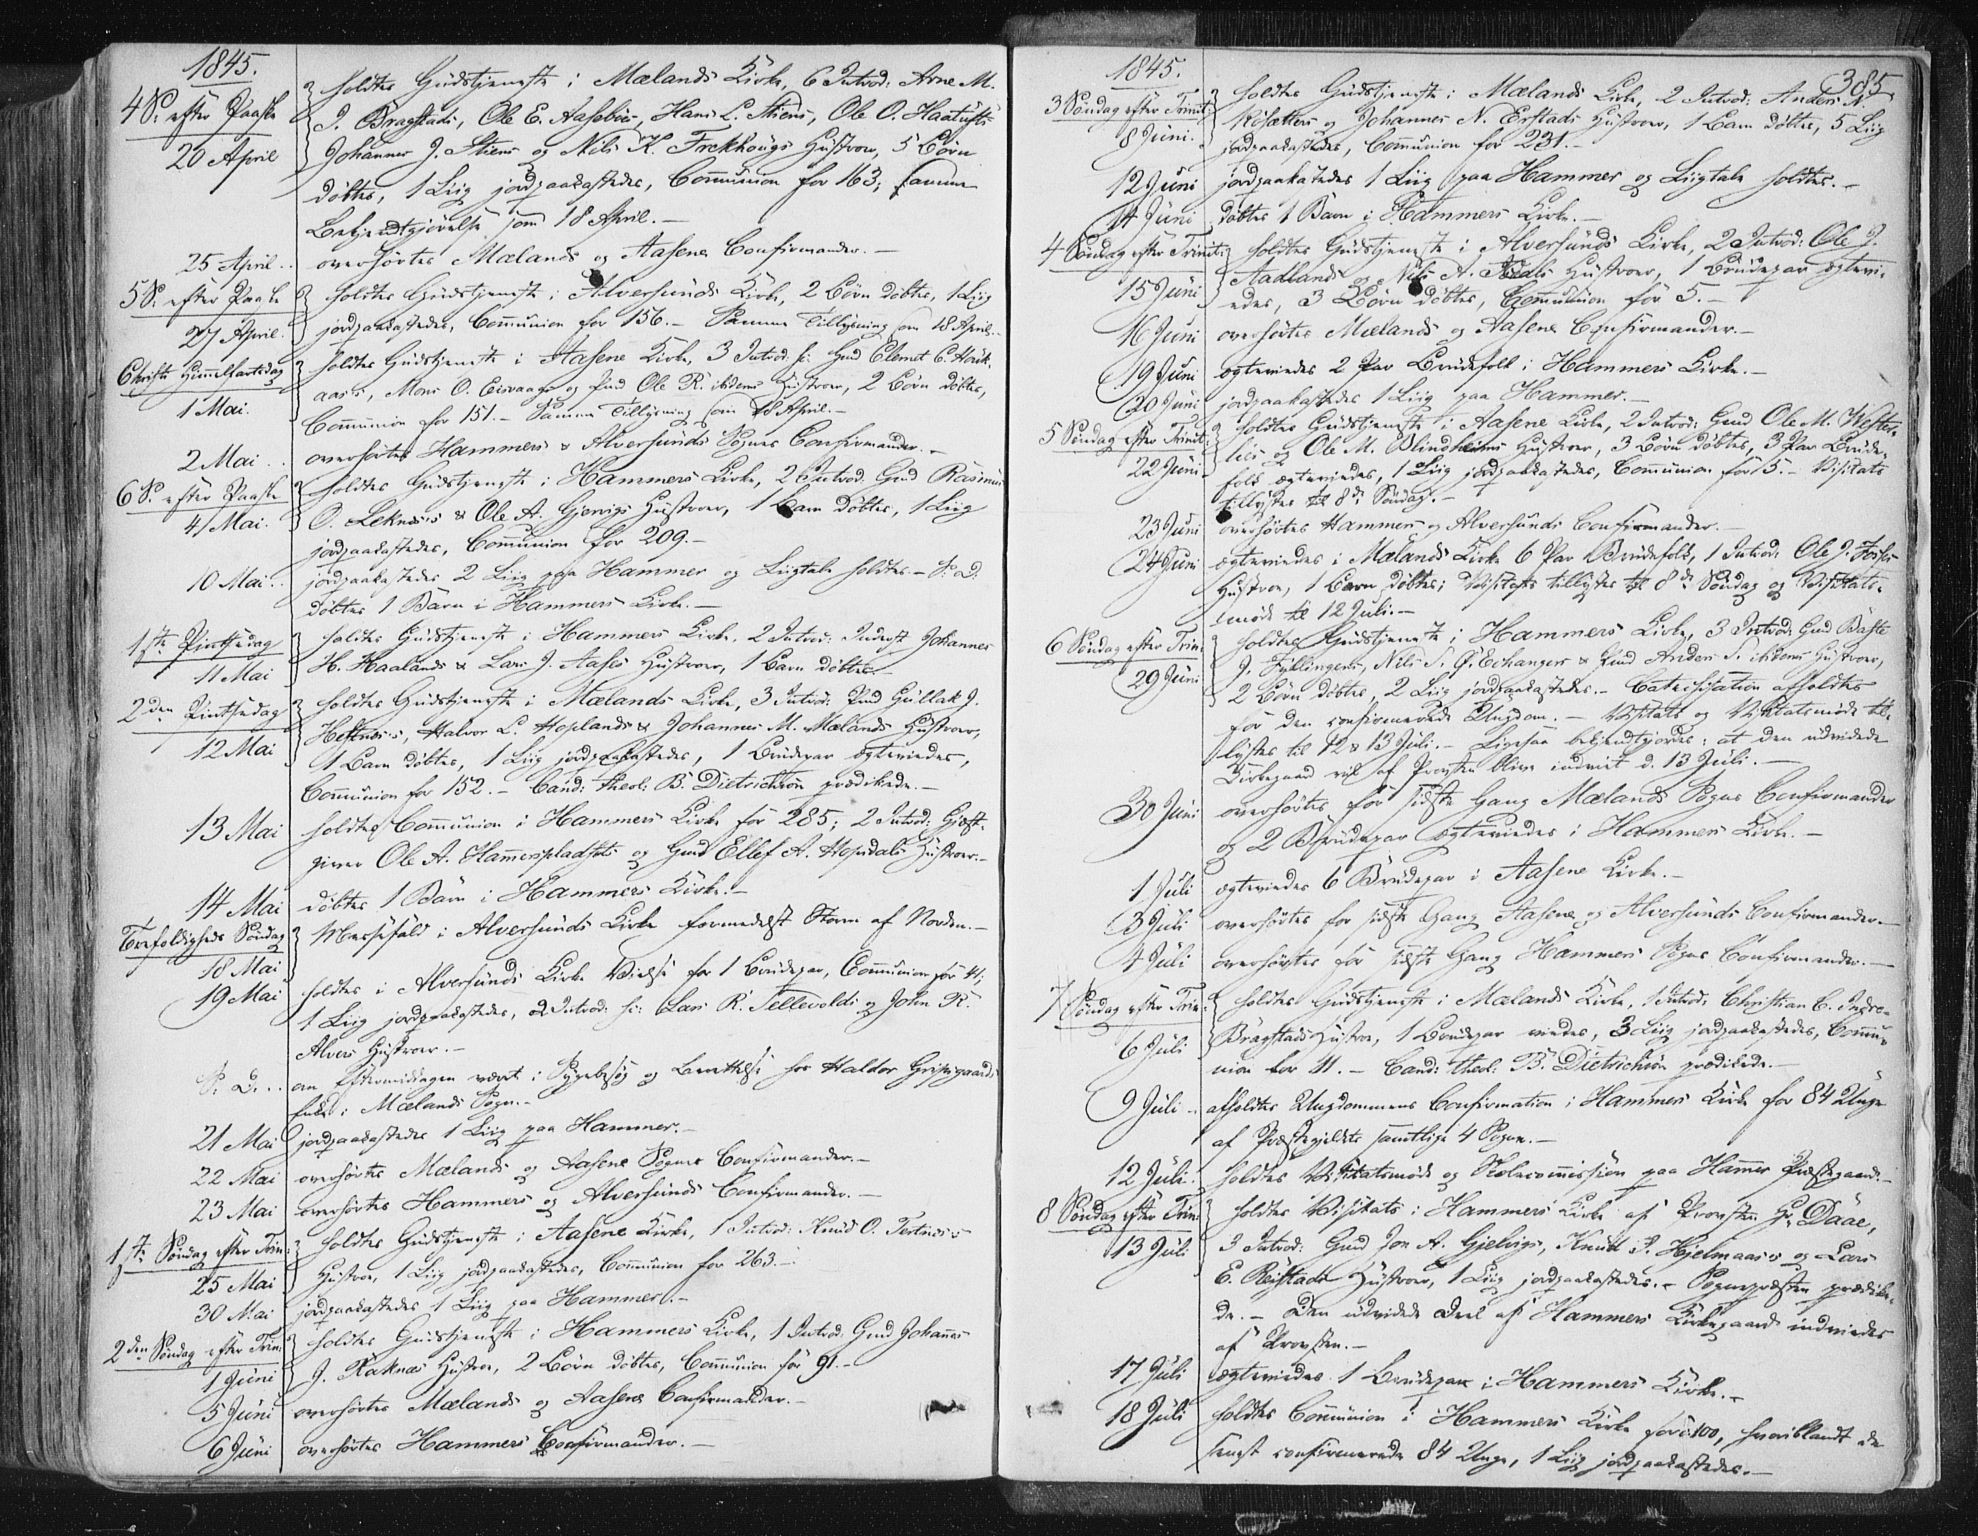 1845.
4 S. efter Paaske
20 April
holdtes Gudstjeneste i Mælands Kirke, 6 Introd: Arne M.
J. Bragstads, Ole E. Aasebøes, Hans L. Stiens, Ole O. Haatufts
Johannes J. Stiens og Nils K. Frekhougs Hustroer, 5 Børn
døbtes, 1 Liig jordpaakastedes, Communion for 163; samme
Bekjendtgjørelse som 18 April.–
25 April.. overhørtes Mælands og Aasene Confirmander.–
5 S. efter Paaske
27 April.
holdtes Gudstjeneste i Alversunds Kirke, 2 Børn døbtes, 1 Liig
jordpaakastedes, Communion for 156.– Samme Tillysning som 18 April.–
Christi Himmelfartsdag
1 Mai.
holdtes Gudstjeneste i Aasene Kirke, 3 Introd: sc: Gmd Clemet C.
aas's, Mons O. Eisvaags og Pmd Ole R. ibidems Hustroer, 2 Børn døbtes,
Communion for 151.– Samme Tillysning som 18 April.–
2 Mai .. overhørtes Hammers & Alversunds Sognes Confirmander.–
6 S. efter Paaske
4 Mai.
holdtes Gudstjeneste i Hammers Kirke, 2 Introd: Gmd Rasmus
O. Leknes's & Ole A. Gjervigs Hustroer, 1 Barn døbtes, 1 Liig
jordpaakastedes, Communion for 209.–
10 Mai.. jordpaakastedes 2 Liig paa Hammer og Liigtale holdtes.– S. D.
døbtes 1 Barn i Hammers Kirke.–
1ste Pintsedag
11 Mai
holdtes Gudstjeneste i Hammers Kirke, 2 Introd: Inderst Johannes
H. Haalands & Lars J. Aases Hustroer, 1 Barn døbtes.–
2den Pintsedag
12 Mai
holdtes Gudstjeneste i Mælands Kirke, 3 Introd: Pmd Gullak J.
Heltnes's, Halvor L. Hoplands & Johannes M. Mælands Hustroer,
1 Barn døbtes, 1 Liig jordpaakastedes, 1 Brudepar ægteviedes,
Communion for 152.– Cand: theol: B. Dietrichson prædikede.–
13 Mai holdtes Communion i Hammers Kirke for 285; 2 Introd: Gjæst-
giver Ole A. Hammerspladsets og Gmd Ellef A. Hopsdals Hustroer.–
14 Mai døbtes 1 Barn i Hammers Kirke.–
Trefoldigheds Søndag
18 Mai
Messefald i Alversunds Kirke formedelst Storm af Norden.–
19 Mai holdtes i Alversunds Kirke Vielse for 1 Brudepar, Communion for 41;
1 Liig jordpaakastedes, 2 Introd: sc: Lars R. Tellevolds og John R.
Alvers Hustroer.–
S. D. .. om Eftermiddagen været i Sygebesøg og Berettelse hos Haldor Gripsgaards
Enke i Mælands Sogn.–
21 Mai jordpaakastedes 1 Liig paa Hammer.–
22 Mai overhørtes Mælands og Aasene Sognes Confirmander.–
23 Mai overhørtes Hammers og Alversunds Confirmander.–
1ste Søndag efter Trin:
25 Mai
holdtes Gudstjeneste i Aasene Kirke, 1 Introd: Knud O. Tertnes's
Hustroe, 1 Liig jordpaakastedes, Communion for 263.–
30 Mai jordpaakastedes 1 Liig paa Hammer.–
2den Søndag efter Trin:
1 Juni
holdtes Gudstjeneste i Hammers Kirke, 1 Introd: Gmd Johannes
J. Raknes Hustroe, 2 Børn døbtes, Communion for 91.–
5 Juni overhørtes Mælands og Aasene Confirmander.–
6 Juni overhørtes Hammers Confirmander.–
1845.
385
3 Søndag efter Trinit:
8 Juni.
holdtes Gudstjeneste i Mælands Kirke, 2 Introd: Anders N.
Risætters og Johannes N. Erstads Hustroer, 1 Barn døbtes, 5 Liig
jordpaakastedes, Communion for 231.–
12 Juni jordpaakastedes 1 Liig paa Hammer og Liigtale holdtes.–
14 Juni døbtes 1 Barn i Hammers Kirke.–
4 Søndag efter Trinit:
15 Juni
holdtes Gudstjeneste i Alversunds Kirke, 2 Introd: Ole J.
Aadlands og Nils A. Hustroer, 1 Brudepar ægtevi-
edes, 3 Børn døbtes, Communion for 5.–
16 Juni overhørtes Mælands og Aasene Confirmander.–
19 Juni ægteviedes 2 Par Brudefolk i Hammers Kirke.–
20 Juni jordpaakastedes 1 Liig paa Hammer.–
5 Søndag efter Trinit:
22 Juni
holdtes Gudstjeneste i Aasene Kirke, 2 Introd: Gmd Ole M. Vester-
lies og Ole M. Blindheims Hustroer, 3 Børn døbtes, 3 Par Brude-
folk ægteviedes, 1 Liig jordpaakastedes, Communion for 5.– Visitats
tillystes til 8de Søndag.–
23 Juni overhørtes Hammers og Alversunds Confirmander.–
24 Juni ægteviedes i Mælands Kirke 6 Par Brudefolk, 1 Introd: Ole J.
Hustroe, 1 Barn døbtes; Visitats tillystes til 8de Søndag og Visitats-
møde til 12 Juli.–
6 Søndag efter Trin:
29 Juni
holdtes Gudstjeneste i Hammers Kirke, 3 Introd: Gmd Baste
J. Fyllingens, Nils S. Ø. Echangers & Pmd Anders S. ibidems Hustroer,
2 Børn døbtes, 2 Liig jordpaakastedes.– Catechisation afholdtes
for den confirmerede Ungdom.– Visitats og Visitatsmøde til-
lystes til 12 & 13 Juli.– Ligesaa bekjendtgjordes: at den udvidede
Kirkegaard vil af Provsten blive indviet d. 13 Juli.–
30 Juni overhørtes for sidste Gang Mælands Sogns Confirmander
og 2 Brudepar ægteviedes i Hammers Kirke.–
1 Juli ægteviedes 6 Brudepar i Aasene Kirke.–
3 Juli overhørtes for sidste Gang Aasene og Alversunds Confirmander.–
4 Juli overhørtes for sidste Gang Hammers Sogns Confirmander.–
7 Søndag efter Trin:
6 Juli
holdtes Gudstjeneste i Mælands Kirke, 1 Introd: Christian C. Indre-
Bragstads Hustroe, 1 Brudepar viedes, 3 Liig jordpaakastedes, Commu-
nion for 11.– Cand: theol: B. Dietrichson prædikede.–
9 Juli .. afholdtes Ungdommens Confirmation i Hammers Kirke for 84 Unge
af Præstegjeldets samtlige 4 Sogne.–
12 Juli. holdtes Visitatsmøde og Skolecommission paa Hammer Præstegaard.–
8 Søndag efter Trin:
13 Juli
holdtes Visitats i Hammers Kirke af Provsten Hr. Daae,
3 Introd: Gmd Jon A. Gjelvigs, Knud P. Hjelmaas's og Lars
E. Reistads Hustroer, 1 Liig jordpaakastedes.– Sognepræsten prædike-
de.– Den udvidede Deel af Hammers Kirkegaard indviedes
af Provsten.–
17 Juli ægteviedes 1 Brudepar i Hammers Kirke.–
18 Juli holdtes Communion i Hammers Kirke for 100, hvoriblandt de
senest confirmerede 84 Unge, 1 Liig jordpaakastedes.–